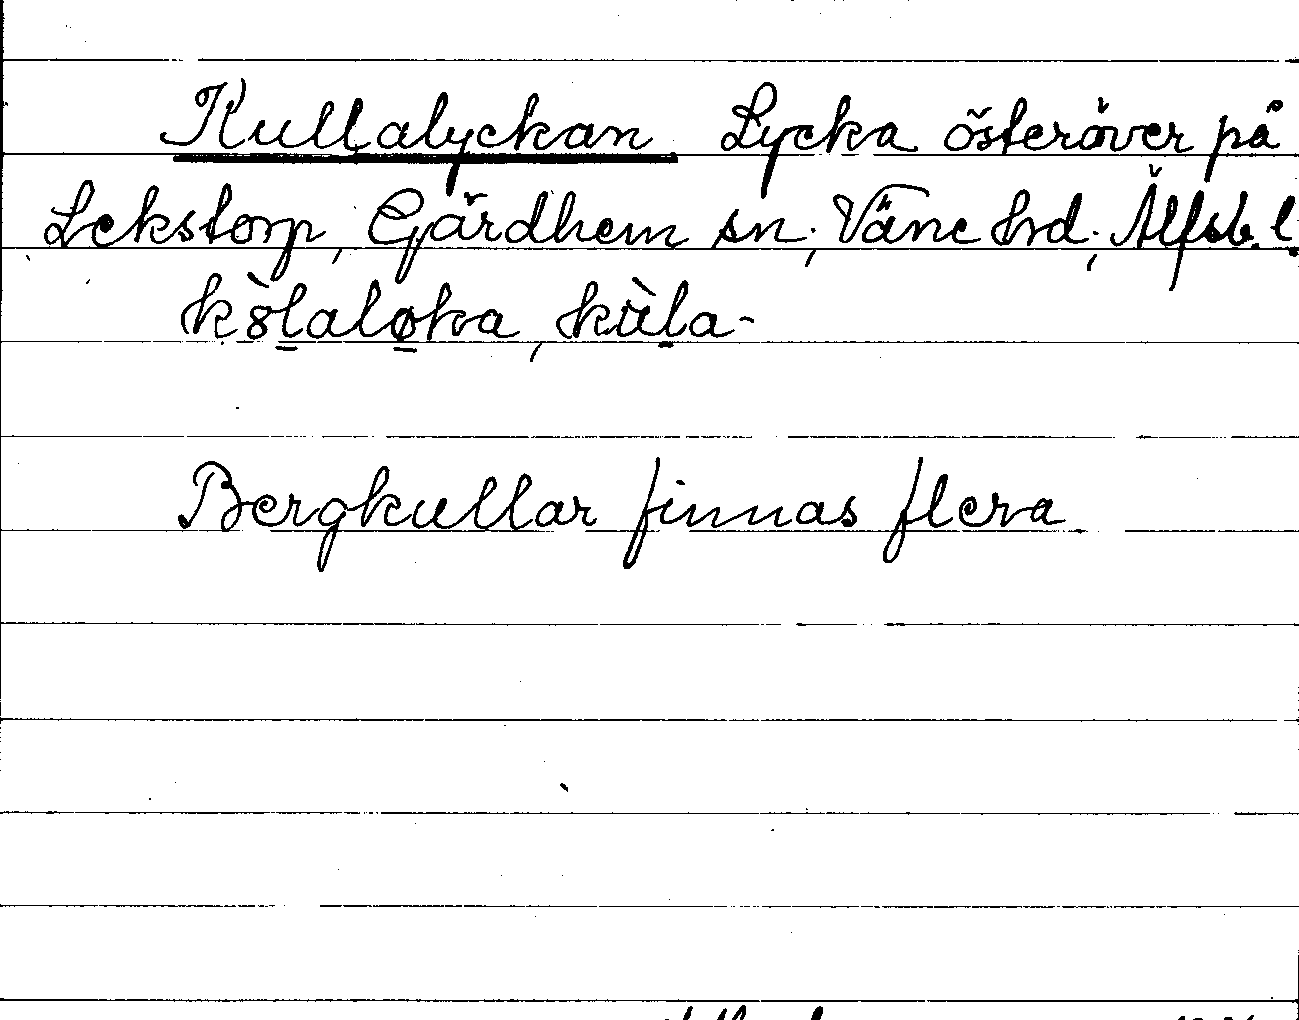 Kullalyckan Lycka österöver på
Lekstorp, Gärdhem sn; Väne hrd; Älfsb. l.
kòlaløka, kùla-
Bergkullar finnas flera